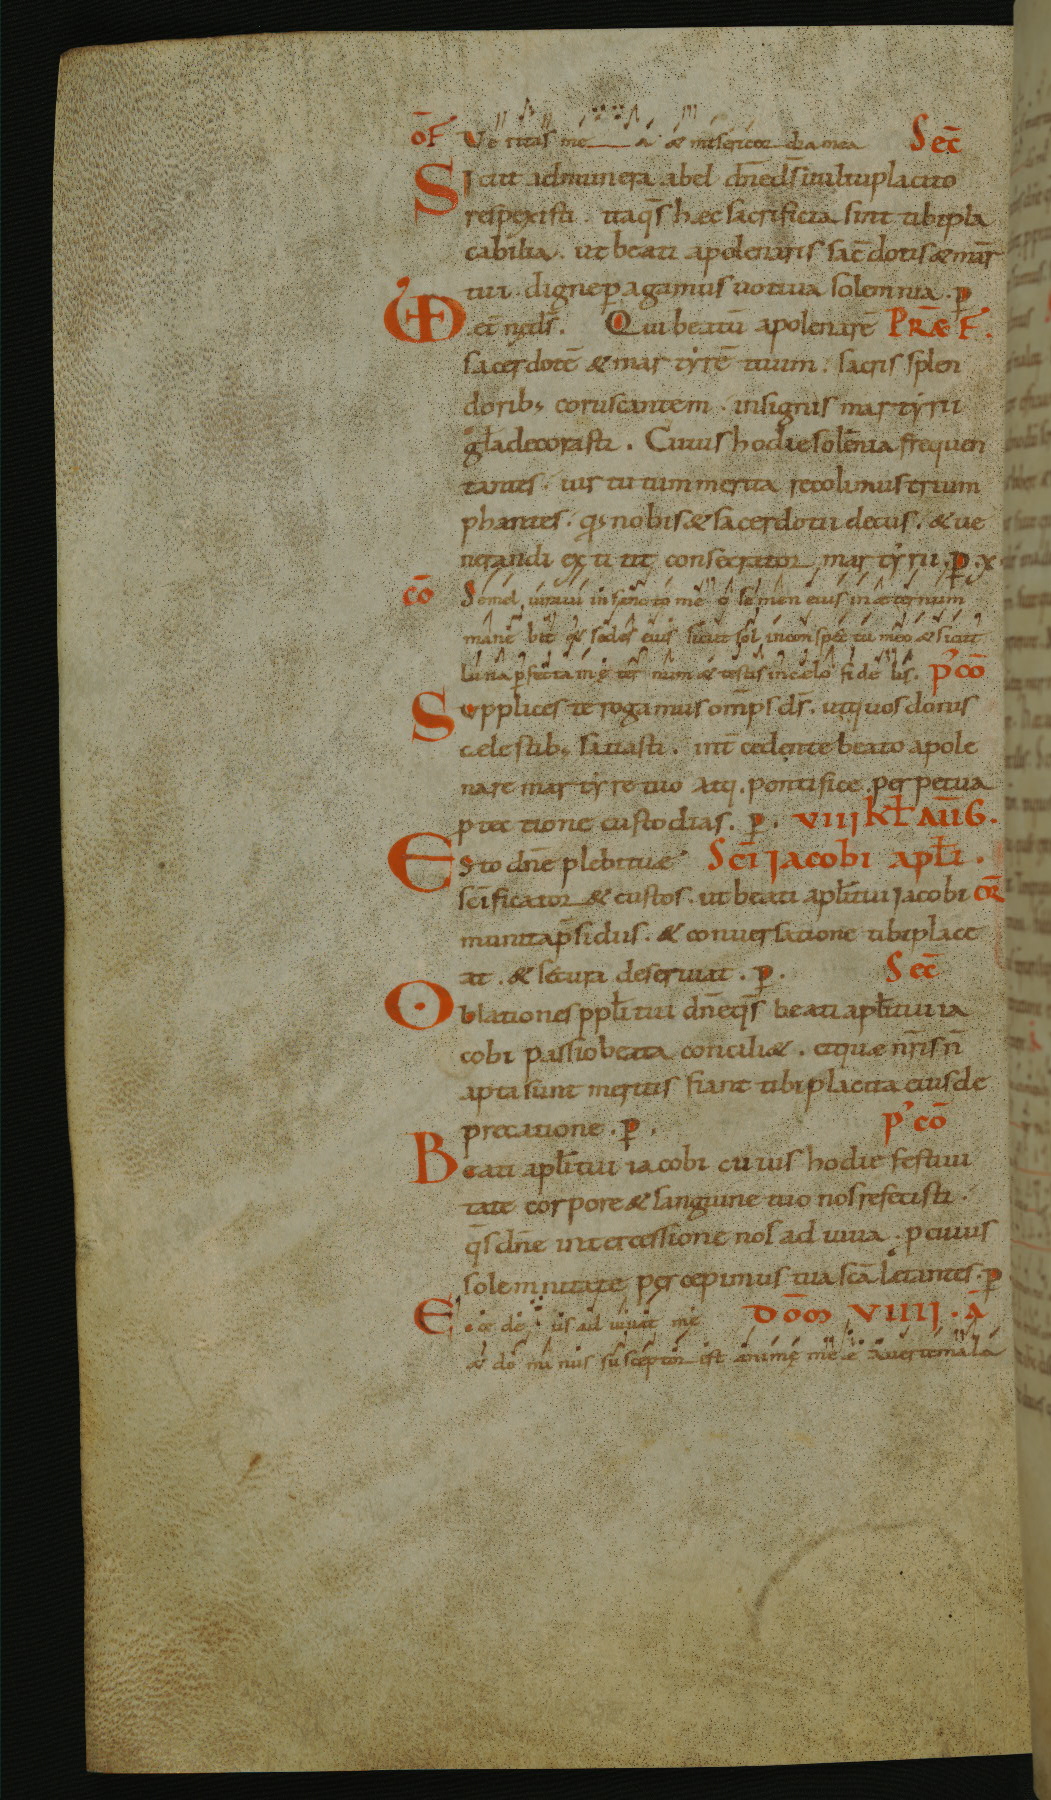 oF Veritas mea & misericordia mea Sec̄
Sicut admunera abel dn̄e ds̄ uultu placito
respexisti. itaq̄s hæc sacrificia sint tibi pla
cabilia. ut beati apolenaris sac̄dotis & mar̄
tui. digne peragamus uotiua solemnia. p̄
et̄ næ ds̄. Qui beatū apolenarē PRÆF.
sacerdotē & martyrē tuum. sacris splen
dorib; coruscantem. insignis martyrii
gl̄a decorasti. Cuius hodie solēnia frequen
tantes. uirtutum merita recolimus trium
phantes. q; nobis & sacerdotii decus. & ue
nerandi extitit consecrator martyrii. p̄. x
cō Semel iuraui in sancto meo semen eius in æternum
manebit & sedes eius sicut sol in conspectu meo & sicut
luna perfecta in ęternum & testis in cælo fidelis. p' cō
Supplices te rogamus omps̄ ds̄. ut quos donis
cælestib; satiasti. int̄cedente beato apole
nare martyre tuo atq. pontifice. perpetua
protectione custodias. p̄. VIII kl̄ AUG.
Esto dn̄e plebi tuæ Sc̄i Iacobi apl̄i.
sc̄ificator & custos. ut beati apl̄i tui Iacobi OR̄
munita p̄sidiis. & conuersatione tibi place
at. & secura deseruiat. p̄. Sec̄
Oblationes ppl̄i tui dn̄e q̄s beati apl̄i tui ia
cobi passio beata conciliæ. et quæ nr̄is n̄
apta sunt meritis fiant tibi placita eius de
precatione. p̄. p' cō
Beati apl̄i tui iacobi cuius hodie festiui
tate corpore & sanguine tuo nos refecisti.
q̄s dn̄e intercessione nos adiuua. p cuius
solemnitate percepimus tua sc̄a lætantes. p̄
Ecce deus adiuuat me DŌM VIIII. Ā
& dominus susceptor est animę meę auerte mala